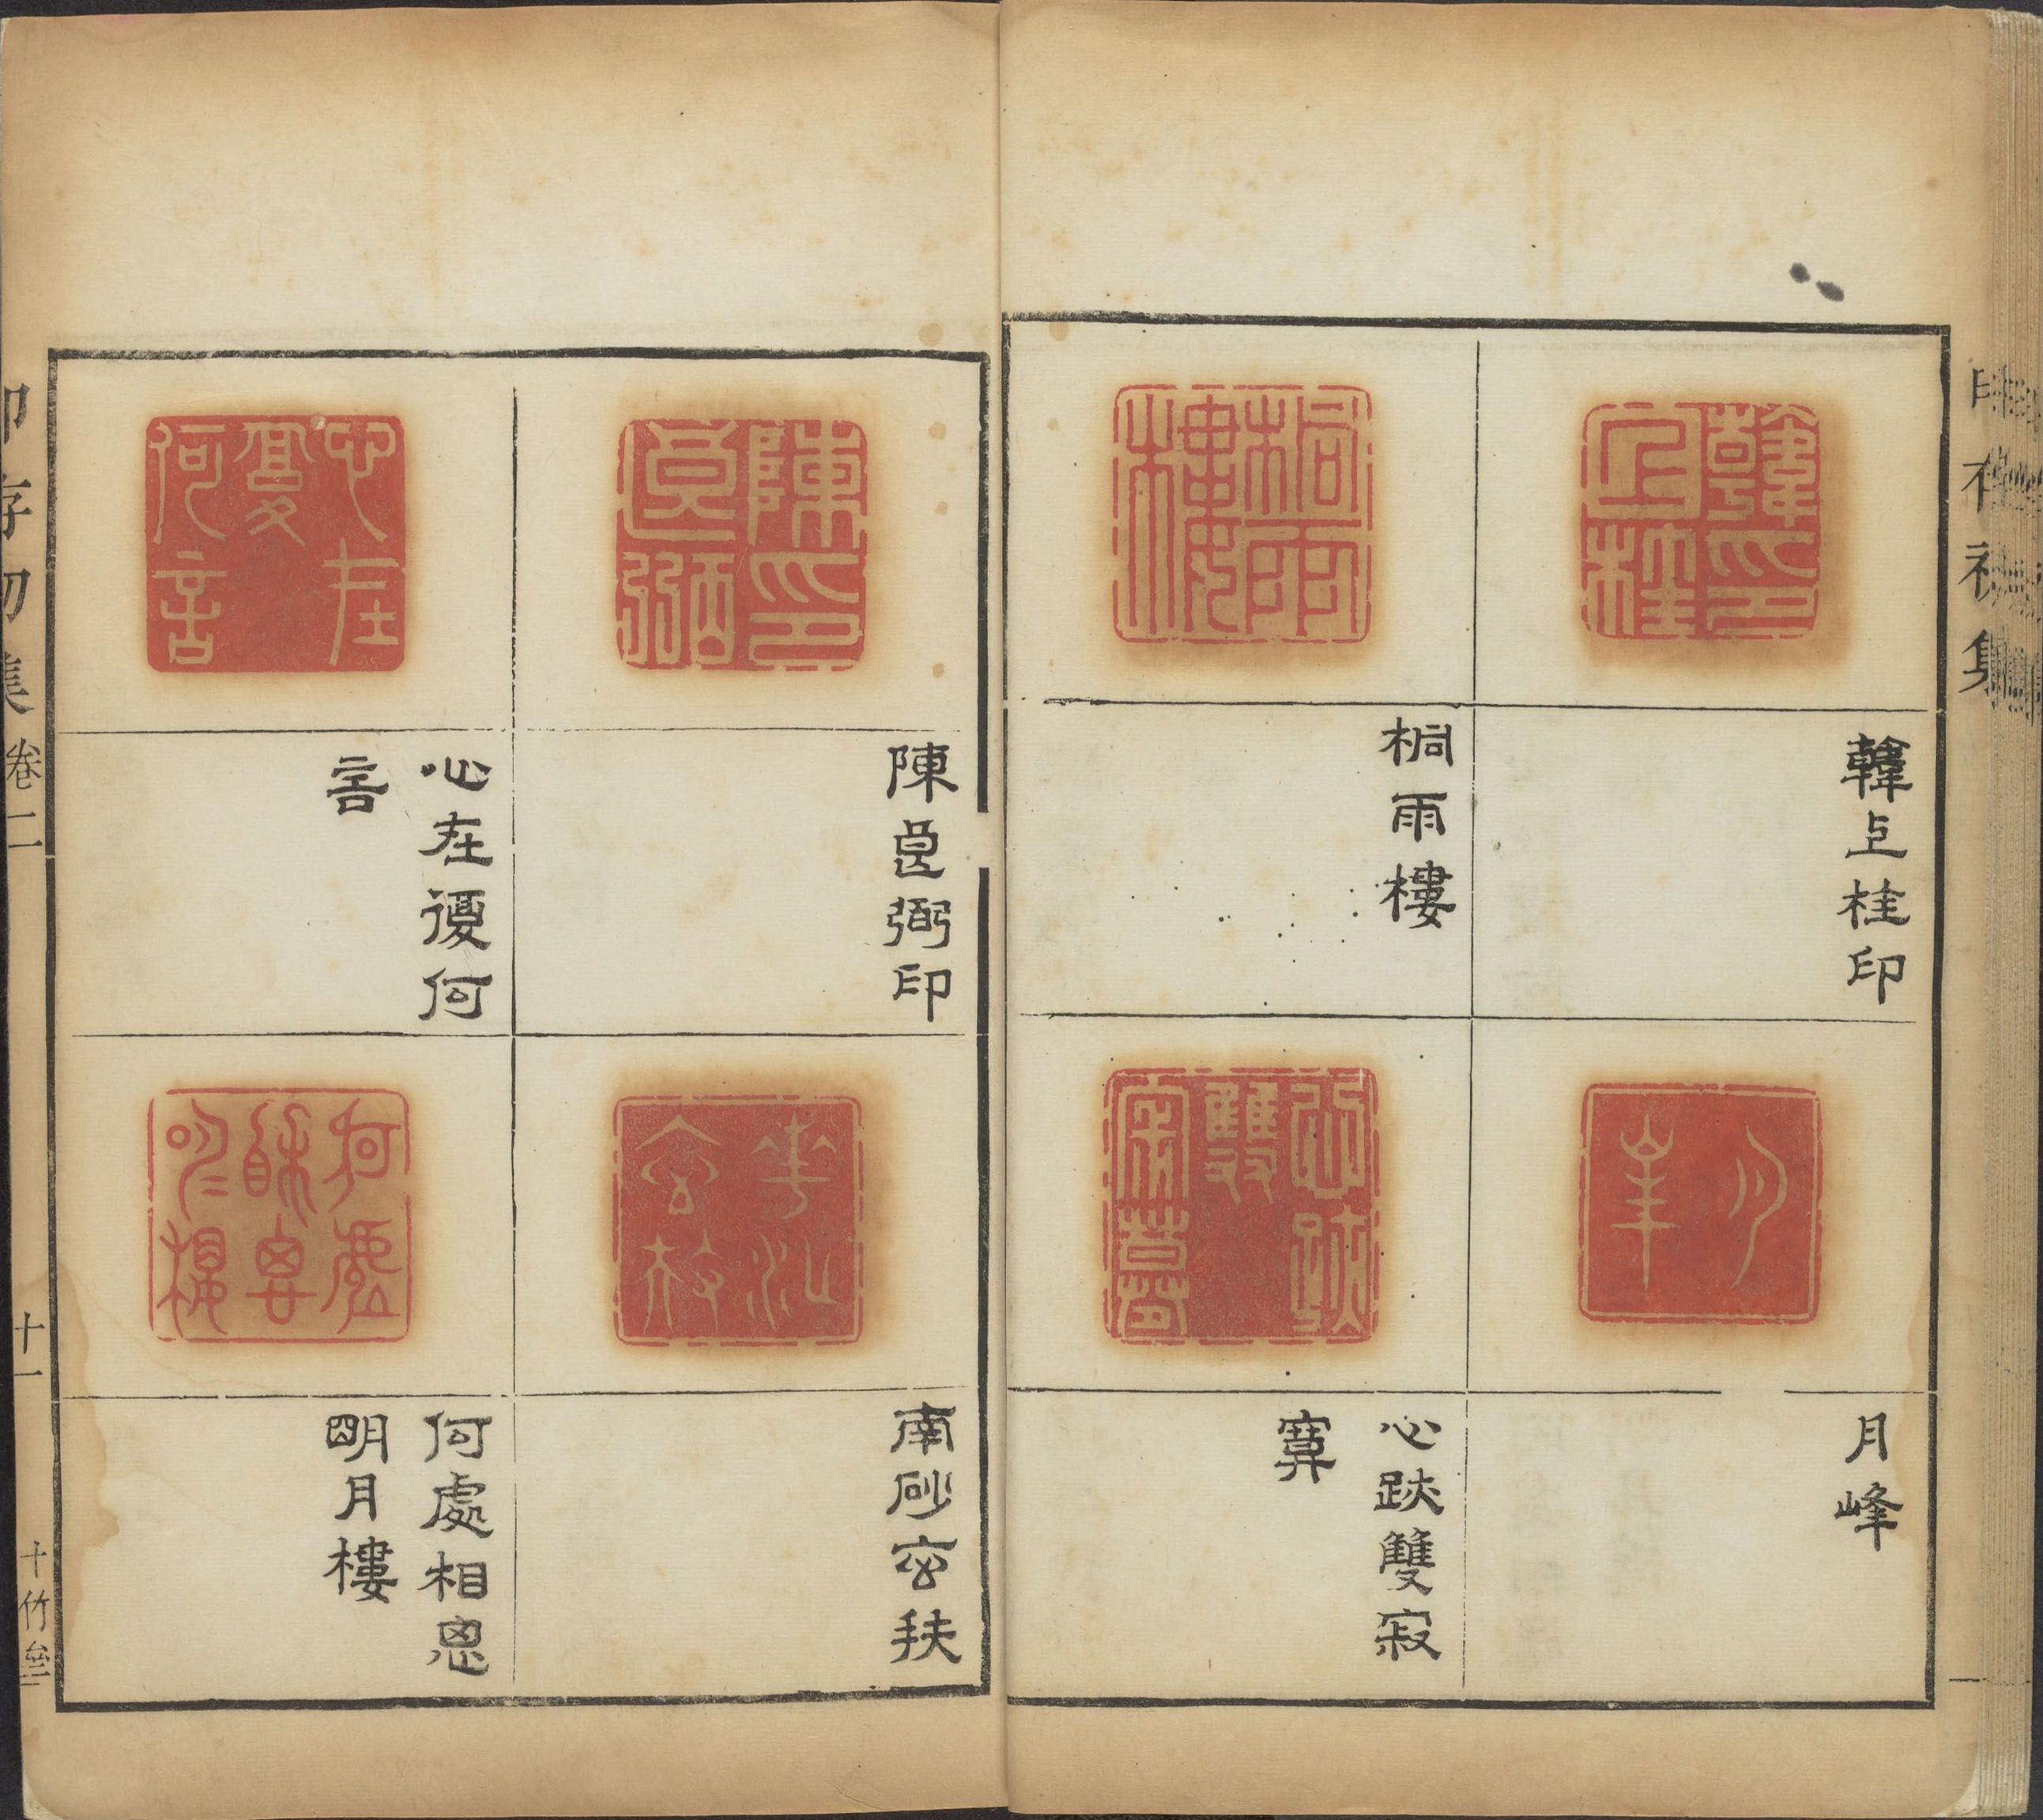 印存初集
韓上桂印
月峰
桐雨樓
心跡雙寂
寞
陳良弼印
南砂宓扶
心在復何
言
何處相思
明月樓
印存初集
卷二
十一
十竹